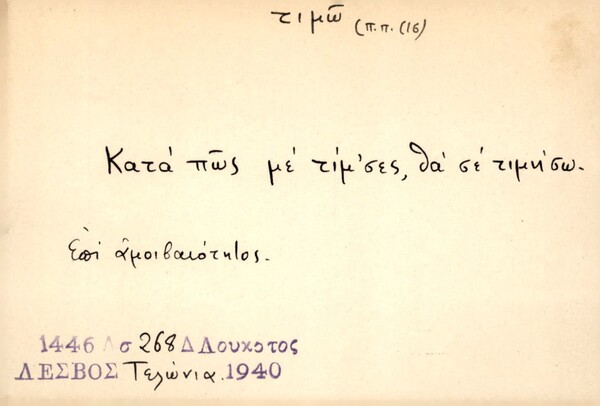 τιμῶ (π.π. (16)
Κατά πῶς μέ τίμ'σες, θά σέ τιμήσω.
Ἐπί ἀμοιβαιότητος.
1446 Α σ 268 Δ Λουκοτος
ΛΕΣΒΟΣ Τελώνια. 1940